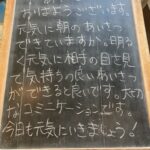 おはようございます。
元気に朝のあいさつが
できていますか。明る
く元気に相手の目を見
て気持ちの良いあいさつ
ができると良いです。大切
なコミニケーションです。
今日も元気にいきましょう!